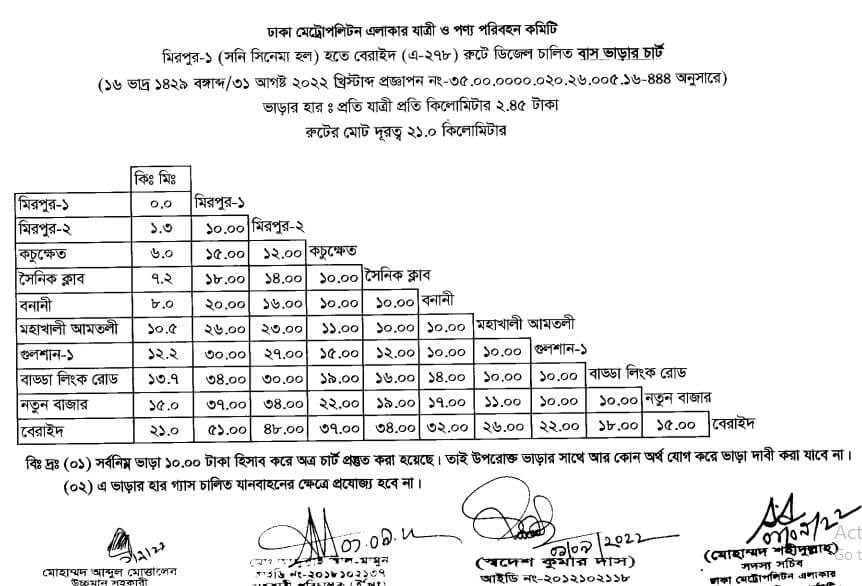 ঢাকা মেট্রোপলিটন এলাকার যাত্রী ও পণ্য পরিবহন কমিটি
মিরপুর-১ (সনি সিনেমা হল) হতে বেরাইদ (এ-২৭৮) রুটে ডিজেল চালিত বাস ভাড়ার চার্ট
(১৬ ভাদ্র ১৪২৯ বঙ্গাব্দ/৩১ আগষ্ট ২০২২ খ্রিস্টাব্দ প্রজ্ঞাপন নং-৩৫.০০.০০০০.০২০.২৬.০০৫.১৬-৪৪৪ অনুসারে)
ভাড়ার হার ঃ প্রতি যাত্রী প্রতি কিলোমিটার ২.৪৫ টাকা
রুটের মোট দূরত্ব ২১.০ কিলোমিটার
কিঃ মিঃ
মিরপুর-১ ০.০ মিরপুর-১
মিরপুর-২ ১.৩ ১০.০০ মিরপুর-২
কচুক্ষেত ৬.০ ১৫.০০ ১২.০০ কচুক্ষেত
সৈনিক ক্লাব ৭.২ ১৮.০০ ১৪.০০ ১০.০০ সৈনিক ক্লাব
বনানী ৮.০ ২০.০০ ১৬.০০ ১০.০০ ১০.০০ বনানী
মহাখালী আমতলী ১০.৫ ২৬.০০ ২৩.০০ ১১.০০ ১০.০০ ১০.০০ মহাখালী আমতলী
গুলশান-১ ১২.২ ৩০.০০ ২৭.০০ ১৫.০০ ১২.০০ ১০.০০ ১০.০০ গুলশান-১
বাড্ডা লিংক রোড ১৩.৭ ৩৪.০০ ৩০.০০ ১৯.০০ ১৬.০০ ১৪.০০ ১০.০০ ১০.০০ বাড্ডা লিংক রোড
নতুন বাজার ১৫.০ ৩৭.০০ ৩৪.০০ ২২.০০ ১৯.০০ ১৭.০০ ১১.০০ ১০.০০ ১০.০০ নতুন বাজার
বেরাইদ ২১.০ ৫১.০০ ৪৮.০০ ৩৭.০০ ৩৪.০০ ৩২.০০ ২৬.০০ ২২.০০ ১৮.০০ ১৫.০০ বেরাইদ
বিঃ দ্রঃ (০১) সর্বনিম্ন ভাড়া ১০.০০ টাকা হিসাব করে অত্র চার্ট প্রস্তুত করা হয়েছে। তাই উপরোক্ত ভাড়ার সাথে আর কোন অর্থ যোগ করে ভাড়া দাবী করা যাবে না।
(০২) এ ভাড়ার হার গ্যাস চালিত যানবাহনের ক্ষেত্রে প্রযোজ্য হবে না।
মোহাম্মদ আব্দুল মোত্তালেন
উচ্চমান সহকারী
মামুন
আইডি নং-২০১৮১০২১৩৭
(স্বদেশ কুমার দাস)
আইডি নং-২০১২১০২১১৮
(মোহাম্মদ শহীদুল্লাহ)
সদস্য সচিব
ঢাকা মেট্রোপলিটন এলাকার